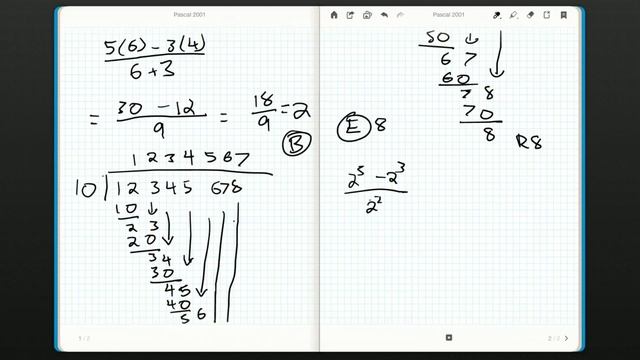 Pascal 2001
5(6) - 3(4)
6 + 3
= 30 - 12 / 9 = 18 / 9 = 2
B
1 2 3 4 5 6 7
10 1 2 3 4 5 6 7 8
10
2 3
20
3 4
30
45
40
5 6
1 / 2
Pascal 2001
50
6 7
60
7 8
70
8 R8
E 8
2^5 - 2^3
2^2
2 / 2